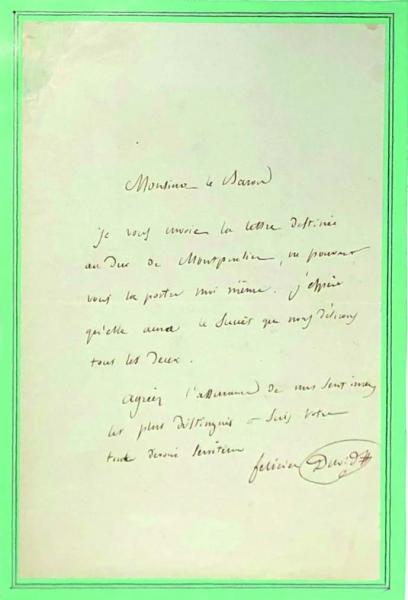 Monsieur le Baron
je vous envoie la lettre destinée
au Duc de Montpensier, ne pouvant
vous la porter moi même. j'espère
qu'elle aura le succès que nous désirons
tous les deux.
Agréez l'assurance de mes sentimens
les plus distingués Votre
tout dévoué serviteur
félicien David